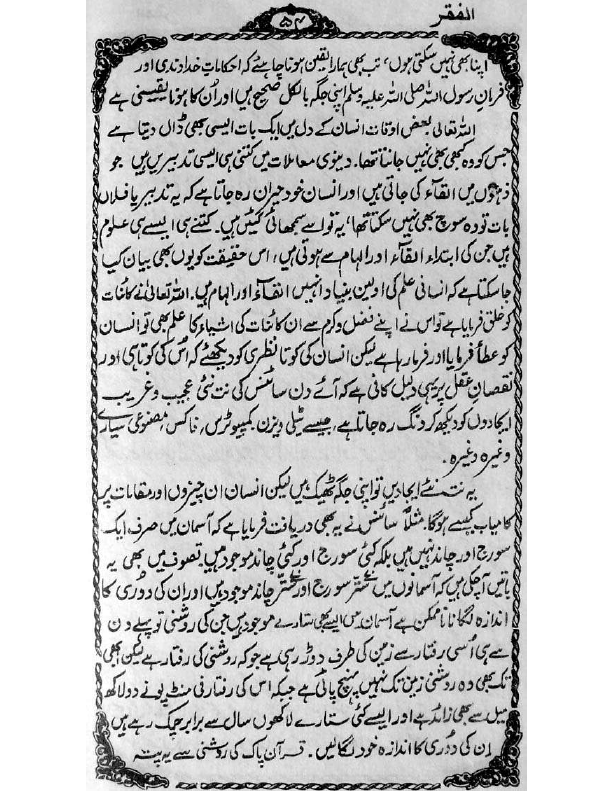 الفقر
۵۴
اپنا بھی نہیں سکتی ہوں، تب بھی ہمارا یقین ہونا چاہئے کہ احکاماتِ خداوندی اور
فرمانِ رسول اللہ صلی اللہ علیہ وسلم اپنی جگہ بالکل صحیح ہیں اور اُن کا ہونا یقینی ہے
اللہ تعالیٰ بعض اوقات انسان کے دل میں ایک بات ایسی بھی ڈال دیتا ہے
جس کو وہ کبھی بھی نہیں جانتا تھا۔ دینوی معاملات میں کتنی ہی ایسی تدبیریں ہیں جو
ذہنوں میں القاء کی جاتی ہیں اور انسان خود حیران رہ جاتا ہے کہ یہ تدبیر یا فلاں
بات تو وہ سوچ بھی نہیں سکتا تھا، یہ تو اسے سمجھائی گئیں ہیں۔ کتنے ہی ایسے ہی علوم
ہیں جن کی ابتداء القاء اور الہام سے ہوتی ہیں، اس حقیقت کو یوں بھی بیان کیا
جا سکتا ہے کہ انسانی علم کی اولین بنیاد انہیں القاء اور الہام ہیں۔ اللہ تعالیٰ نے کائنات
کو خلق فرمایا ہے تو اس نے اپنے فضل و کرم سے ان کائنات کی اشیاء کا علم بھی تو انسان
کو عطا فرمایا اور فرما رہا ہے لیکن انسان کی کوتا نظری کو دیکھئے کہ اُس کی کوتاہی اور
نقصانِ عقل پر یہی دلیل کافی ہے کہ آئے دن سائنس کی نت نئی عجیب و غریب
ایجادوں کو دیکھ کر دنگ رہ جاتا ہے، جیسے ٹیلی ویژن، کمپیوٹرس، فاکس، مصنوعی سیارے
وغیرہ وغیرہ۔
یہ نت نئے ایجادیں تو اپنی جگہ ٹھیک ہیں لیکن انسان ان چیزوں اور مقامات پر
کامیاب کیسے ہوگا۔ مثلاً سائنس نے یہ بھی دریافت فرمایا ہے کہ آسمان میں صرف ایک
سورج اور چاند نہیں ہیں بلکہ کئی سورج اور کئی چاند موجود ہیں۔ تصوف میں بھی یہ
باتیں آچکی ہیں کہ آسمانوں میں ستّر سورج اور ستّر چاند موجود ہیں اور ان کی دُوری کا
اندازہ لگانا ناممکن ہے آسمان میں ایسے بھی ستارے موجود ہیں جن کی روشنی تو پہلے دن
سے ہی اُسی رفتار سے زمین کی طرف دوڑ رہی ہے جو کہ روشنی کی رفتار ہے لیکن ابھی
تک بھی وہ روشنی زمین تک نہیں پہنچ پائی ہے جبکہ اس کی رفتار فی منٹ پونے دو لاکھ
میل سے بھی زائد ہے اور ایسے کئی ستارے لاکھوں سال سے برابر چمک رہے ہیں
اِن کی دُوری کا اندازہ خود لگالیں۔ قرآن پاک کی روشنی سے یہ پتہ